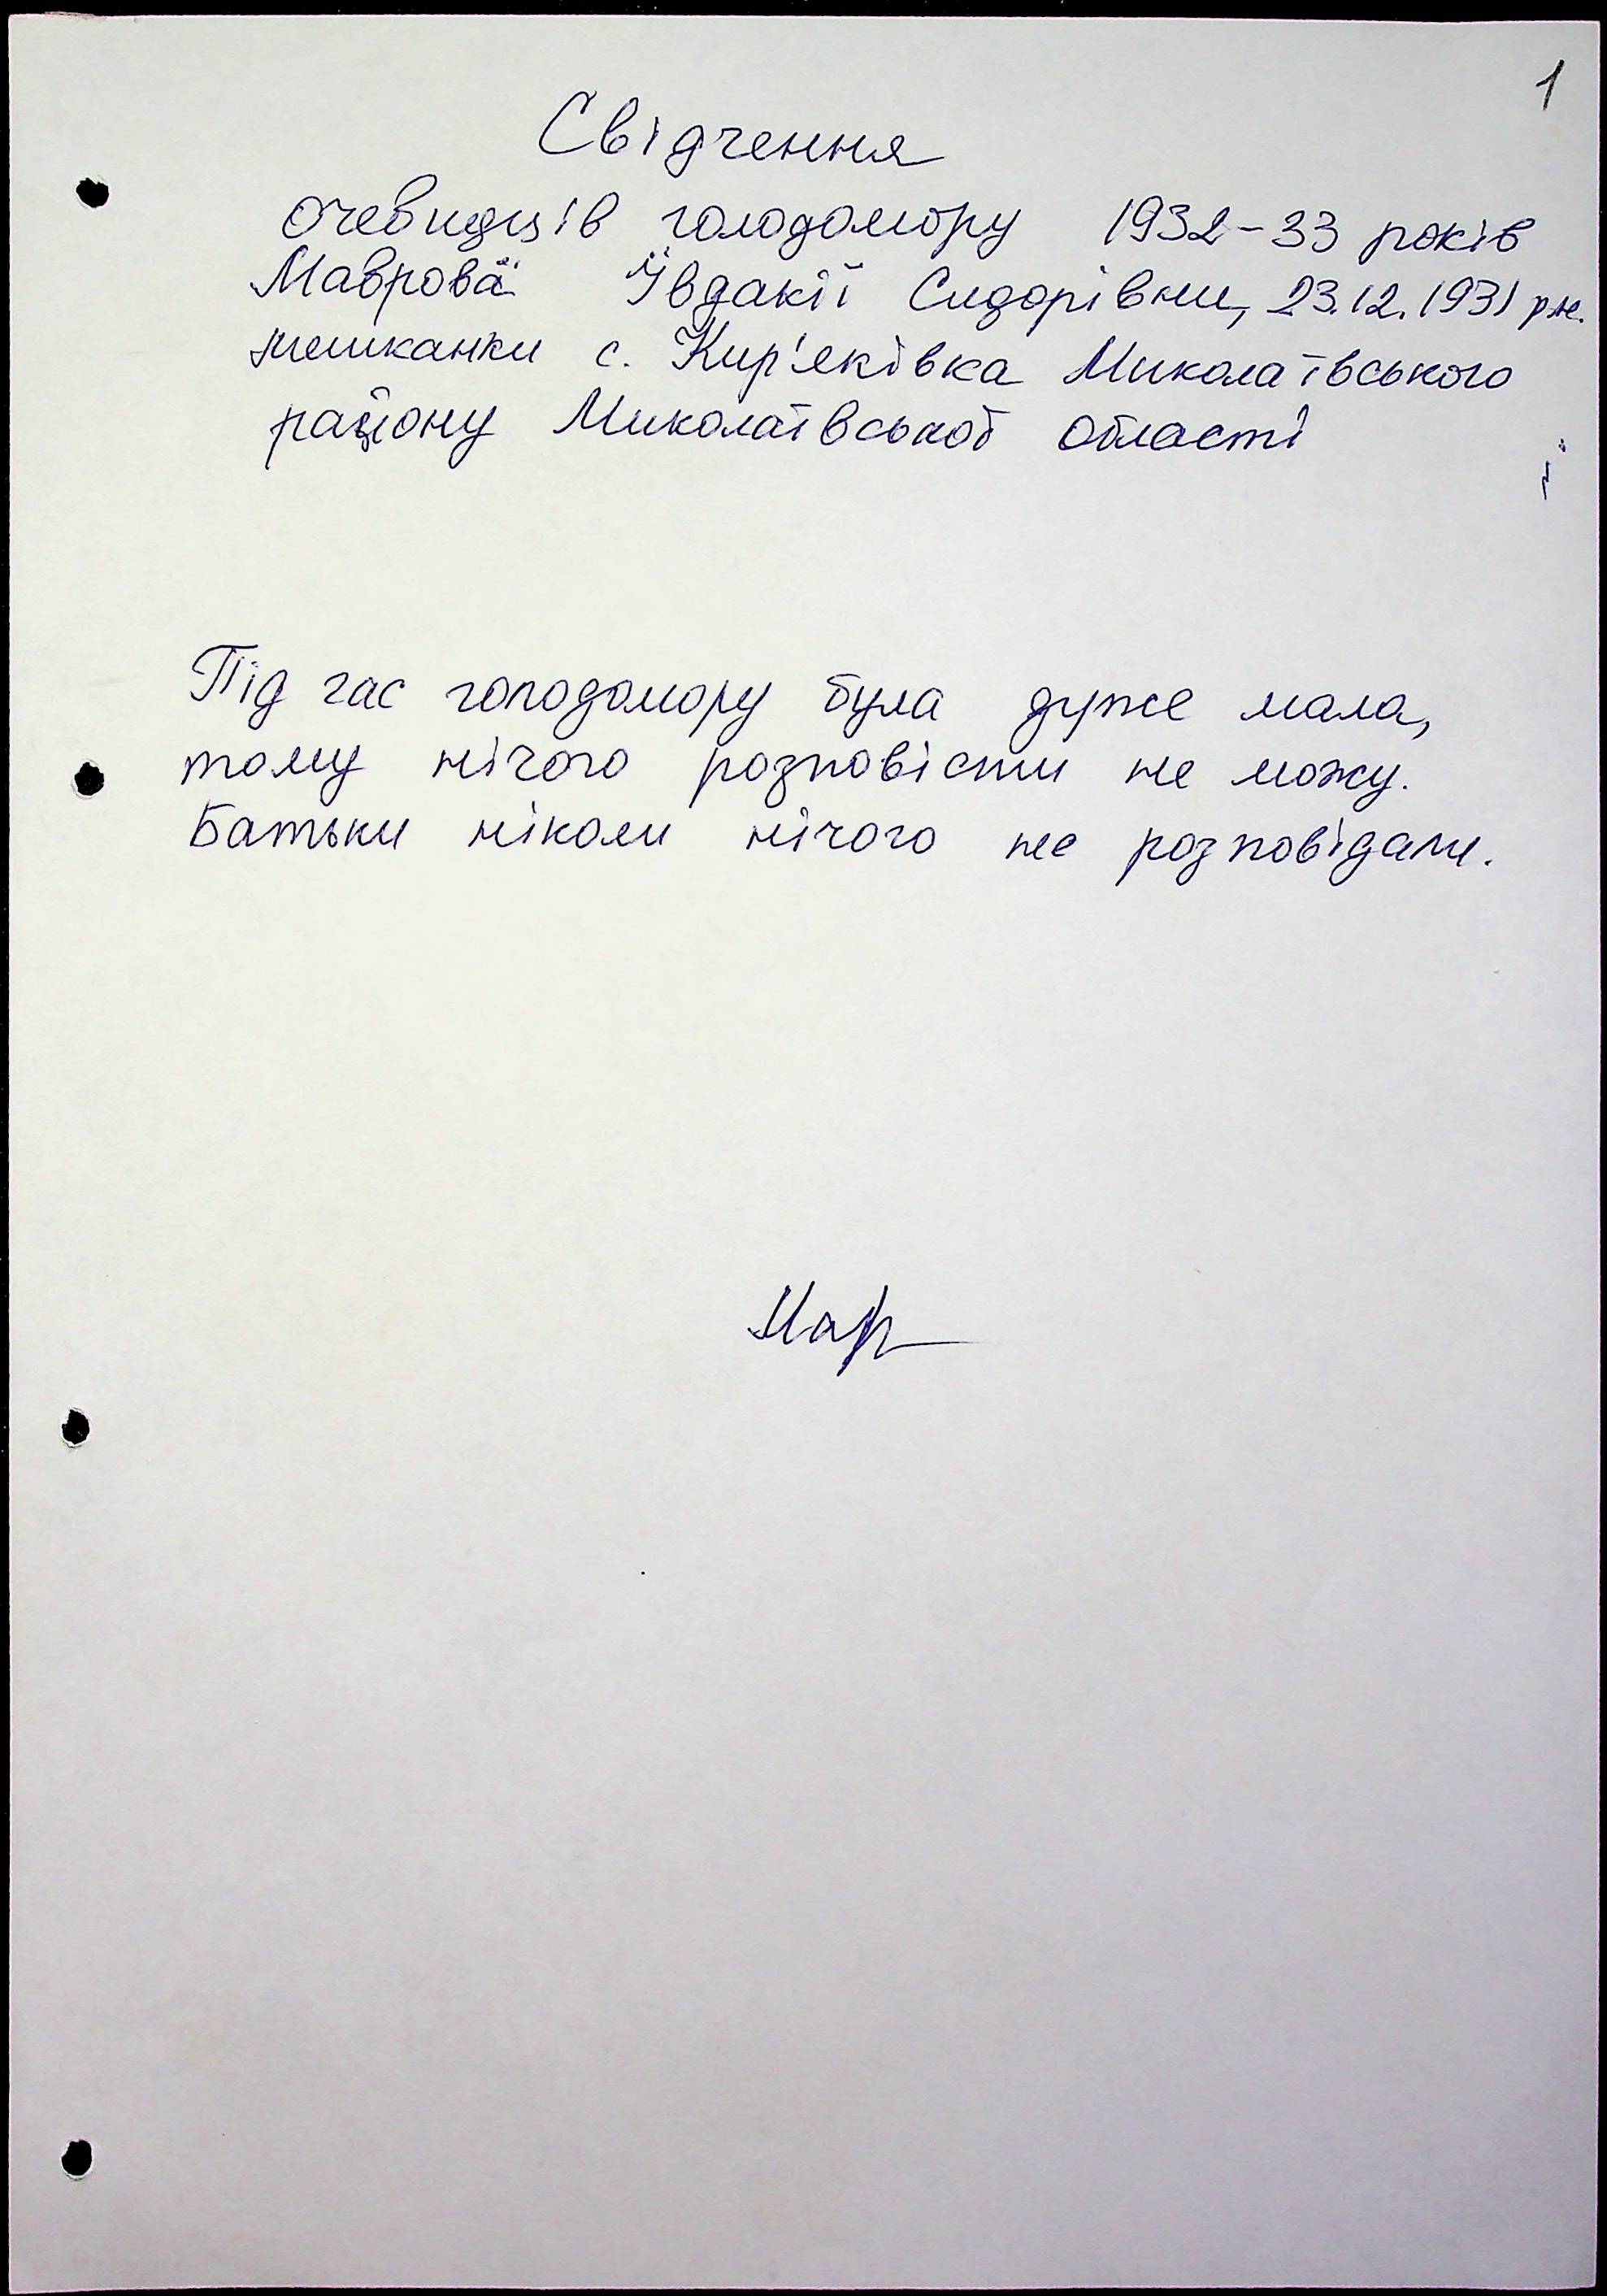 1
Свідчення
очевидців голодомору 1932-33 років
Маврова Ївдакії Сидорівни, 23.12.1931 р.н.
мешканки с. Кир'яківка Миколаївського
району Миколаївської області
Під час голодомору була дуже мала,
тому нічого розповісти не можу.
Батьки ніколи нічого не розповідали.